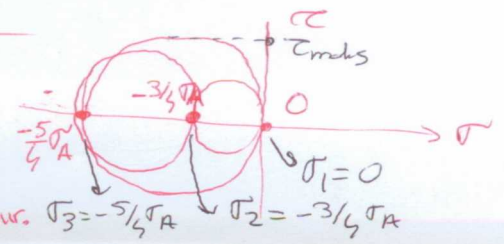 τ
τmaks
-3/4 σA
0
-5/4 σA
σ
σ1 = 0
ur. σ3 = -5/4 σA σ2 = -3/4 σA